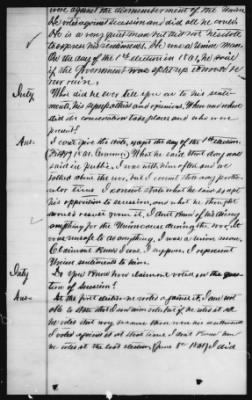 were against the dismemberment of the Union
He voted against secession and did all he could
He is a very quiet man but did not hesitate
to express his sentiments. He was a Union man.
On the day of the 1st election in 1861, he said
if the Government was split up it would be
our ruin.
Sixty
Did he ever tell you as to his senti-
ments, his sympathies and opinions. When and where
did the conversation take place and who were
present?
Ans.
I can't give the date, except the day of the 1st election.
What he said that day was
said in public. I was with him often and we
talked about the war, but I cannot state any partic-
ular time. I cannot state what he said except
his opposition to secession, and what he thought
would result from it. I don't know of his doing
anything for the Union cause during the war. It
was unsafe to do anything. I was a Union man,
Claimant knew I was, I suppose. I represent
Union sentiments to him.
Sixty
Do you know how claimant voted on the ques-
tion of secession?
Ans.
At the first election he voted against it, I am not
able to state that I saw him vote but if he voted at all
he voted that way
I voted against it at that time. I don't know how
he voted at the last election (June 8th 1861) I did